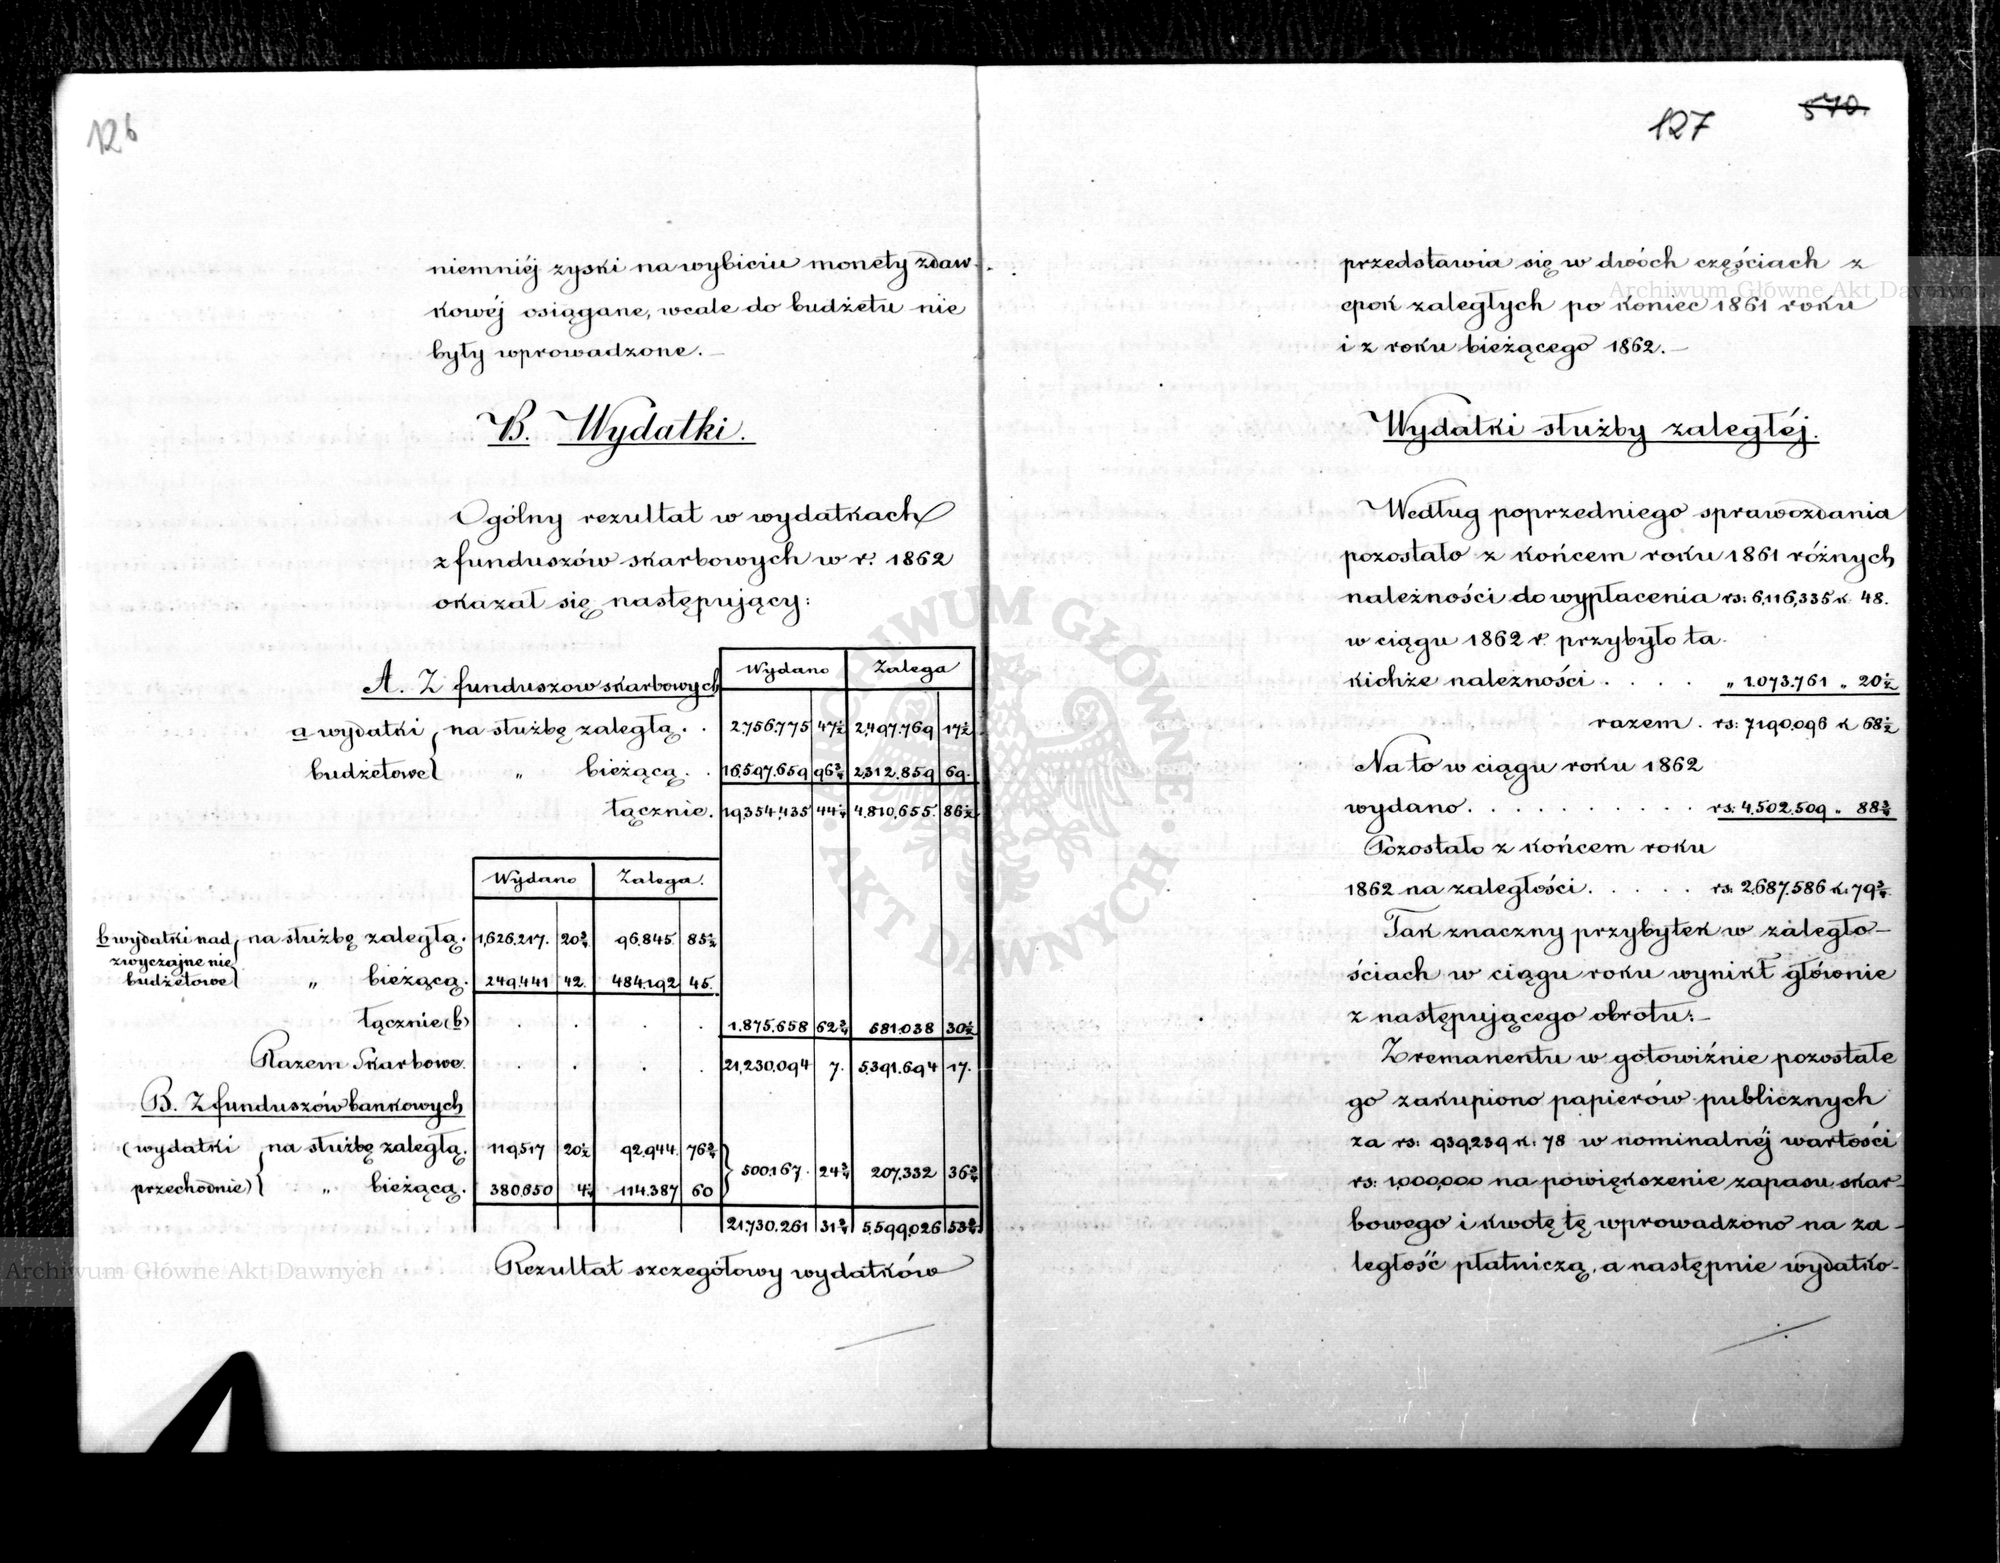 126
niemniéj zyski na wybiciu monety zdaw-
kowéj osiągane, wcale do budżetu nie
były wprowadzone. —
B. Wydatki.
Ogólny rezultat w wydatkach
z funduszów skarbowych w r. 1862
okazał się następujący:
Wydano Zalega
A. Z funduszów skarbowych
a wydatki na służbę zaległą. . 2.756.775 47½ 2,497.769 17½
budżetowe „ bieżącą. . 16.597.659 96¾ 2.312.859 69.
łącznie. 19,354,435 44¼ 4.810,655. 86½
Wydano Zalega.
b wydatki nad na służbę zaległą. 1,626.217. 20¾ 96.845. 85½
zwyczajne nie
budżetowe „ bieżącą. 249.441 42. 484.192 45.
łącznie (b) . . . . 1.875.658 62¾ 581.038 30½
Razem Skarbowe. . . . . 21,230,094 7. 5.391.694 17.
B. Z funduszów bankowych
(wydatki na służbę zaległą. 119,517 20½ 92,944. 76¾ 500.167. 24¾ 207.332 36¾
przechodnie) „ bieżącą. 380,650 4¼ 114.387 60
21.730.261 31¾ 5.599,026 53¾
Rezultat szczegółowy wydatków
570.
127
przedstawia się w dwóch częściach z
epok zaległych po koniec 1861 roku
i z roku bieżącego 1862. —
Wydatki służby zaległéj.
Według poprzedniego sprawozdania
pozostało z końcem roku 1861 różnych
należności do wypłacenia rs: 6,116,335 k. 48.
w ciągu 1862 r. przybyło ta-
kichże należności . . . . „ 1.073.761 „ 20½
razem . rs: 7,190.096 k 68½
Na to w ciągu roku 1862
wydano. . . . . . . . . . . rs: 4.502.509 „ 88¾
Pozostało z końcem roku
1862 na zaległości. . . . . rs: 2,687.586 k. 79¾
Tak znaczny przybytek w zaległo-
ściach w ciągu roku wynikł głównie
z następującego obrotu: —
Z remanentu w gotowiźnie pozostałe
go zakupiono papierów publicznych
za rs: 939,239 k: 78 w nominalnéj wartości
rs: 1,000,000 na powiększenie zapasu skar-
bowego i kwotę tę wprowadzono na za-
ległość płatniczą, a następnie wydatko-
Archiwum Główne Akt Dawnych
Archiwum Główne Akt Dawnych
ARCHIWUM GŁÓWNE • AKT DAWNYCH •